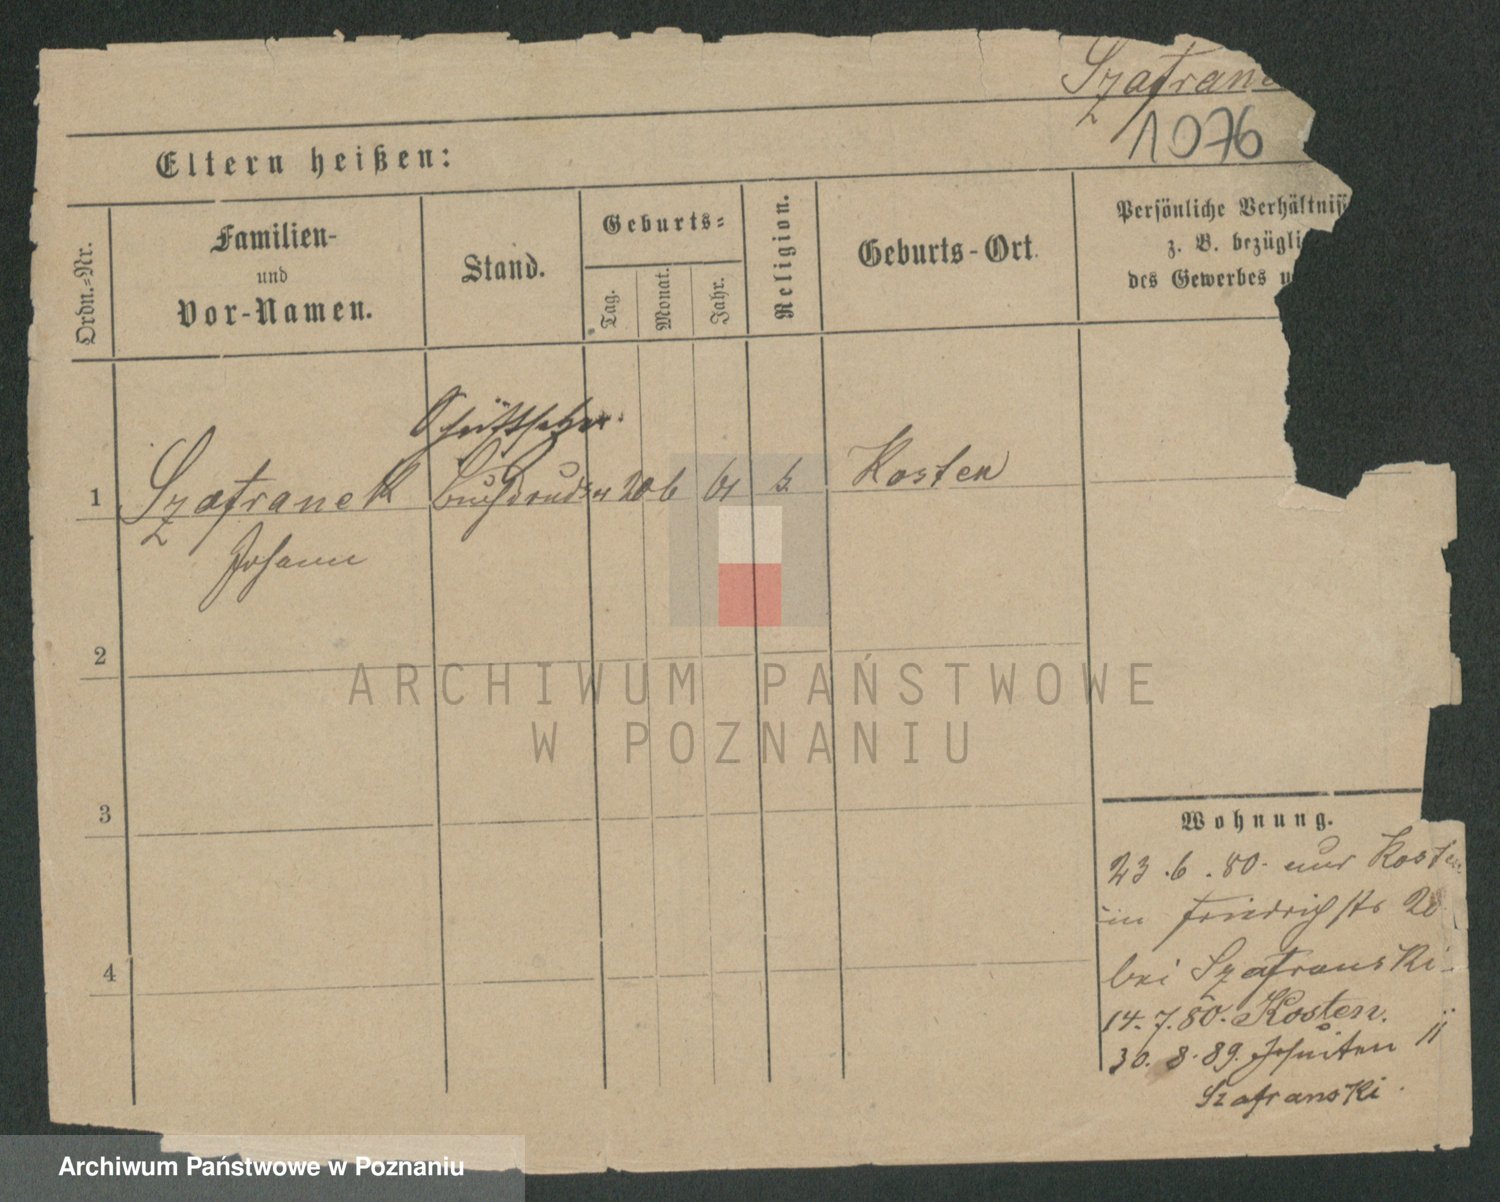 Szafrane
1076
Eltern heißen:
Ordn.-Nr.
Familien-
und
Vor-Namen.
Stand.
Geburts-
Tag.
Monat.
Jahr.
Religion.
Geburts-Ort.
Persönliche Verhältniss
z. B. bezügli
des Gewerbes u
Schriftsetzer
1 Szafranek Buchdrucker 20 6 61 k. Kosten
Johann
2
3
4
Wohnung.
23.6.80. aus Kosten
in Friedrichstr 20
bei Szafranski
14.7.80. Kosten.
30.8.89. Jesuiten 11
Szafranski.
ARCHIWUM PAŃSTWOWE
W POZNANIU
Archiwum Państwowe w Poznaniu